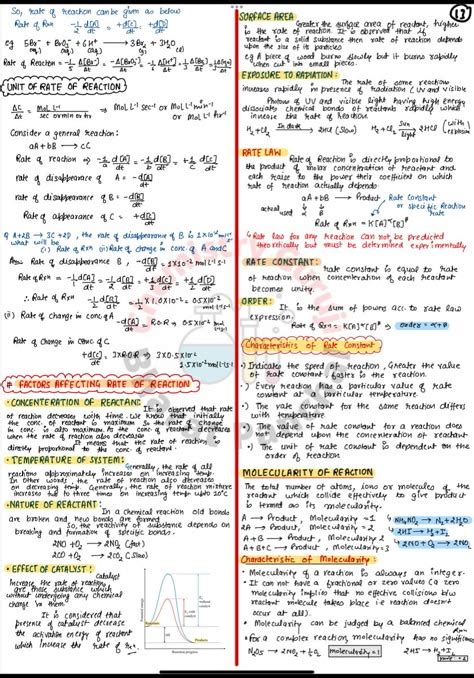 So, rate of reaction can be given as below
Rate of Rxn = -1/2 d[A]/dt = -d[B]/dt = +d[C]/dt = +d[D]/dt
eg 5Br⁻ + BrO₃⁻ + 6H⁺ → 3Br₂ + 3H₂O
Rate of Reaction = -1/5 Δ[Br⁻]/Δt = -Δ[BrO₃⁻]/Δt = -1/6 Δ[H⁺]/Δt = +1/3 Δ[Br₂]/Δt
UNIT OF RATE OF REACTION
ΔC/Δt = Mol L⁻¹/sec or min or hr ⇒ Mol L⁻¹ sec⁻¹ or Mol L⁻¹ min⁻¹
or Mol L⁻¹ hr⁻¹
Consider a general reaction:
aA + bB → cC
Rate of reaction → -1/a d[A]/dt = -1/b d[B]/dt = +1/c d[C]/dt
rate of disappearance of A = -d[A]/dt
rate of disappearance of B = -d[B]/dt
Rate of appearance of C = +d[C]/dt
Q A+2B → 3C + 2D, the rate of disappearance of B is 1×10⁻² mol
what will be (i) Rate of Rxn (ii) Rate of change in conc. of A and C
Rate of disappearance B, -d[B]/dt = 1×10⁻² mol
Rate of Rxn = -d[A]/dt = -1/2 d[B]/dt = +1/3 d[C]/dt = +1/2 d[D]/dt
∴ Rate of Rxn = -1/2 d[B]/dt = 1/2 × 1.0×10⁻² = 0.5×10⁻²
(ii) Rate of change in conc. of A -d[A]/dt = 0.5×10⁻²
Rate of change in conc. of C
d[C]/dt = 3×R.O.R ⇒ 3×0.5×10⁻²
1.5×10⁻²
# FACTORS AFFECTING RATE OF REACTION
• CONCENTERATION OF REACTANT: It is observed that rate
of reaction decreases with time. We know that initially
the conc. of reactant is maximum so the rate of change
in conc. is also maximum. As the conc. of reactant decreases
when the rate of reaction also decrease
It means that the rate of reaction is
directly proportional to the conc. of reactant.
• TEMPERATURE OF SYSTEM: Generally, the rate of all
reactions approximately increases on increasing temp.
In other word, the rate of reaction also decreases
on decreasing temp. Generally, the rate of reaction
increases two to three times on increasing temp upto 10°C
• NATURE OF REACTANT: In a chemical reaction old bonds
are broken and new bonds are formed
So, the reactivity of substance depends on
breaking and formation of specific bonds.
2NO + O₂ → 2NO₂ (fast)
2CO + O₂ → 2CO₂ (slow)
• EFFECT OF CATALYST: Catalyst
Increase the rate of reaction
are those substance which
without undergoing any chemical
change in them
It is considered that
presence of catalyst decrease
the activation energy of reactant
which increase the rate of Rxn.
Reactants
Products
Reaction progress
(12)
SURFACE AREA: Greater the surface area of reactant, higher
is the rate of reaction. It is observed that if
reactant is a solid substance then rate of reaction depends
upon the size of its particles
eg A piece of wood burns slowly but it burns rapidly
when cut into small pieces.
EXPOSURE TO RADIATION: The rate of some reaction
increases rapidly in presence of radiation (UV and visible
Photons of UV and visible light having high energy
dissociates chemical bonds of reactants rapidly which
increase the rate of reaction
H₂ + Cl₂ In dark → 2HCl (Slow) H₂ + Cl₂ Sun light → 2HCl (with explosion)
RATE LAW: Rate of Reaction is directly proportional to
the product of molar concentration of reactant and
each raise to the power their coefficient on which
rate of reaction actually depends
aA + bB → Product
actual used
Rate Constant
or specific Reaction rate
Rate of Rxn = K[A]^α[B]^β
* Rate law for any reaction can not be predicted
theoretically but must be determined experimentally
RATE CONSTANT: rate constant is equal to rate
of reaction when concentration of each reactant
becomes unity.
ORDER: It is the sum of powers acc. to rate law
expression.
Rate of Rxn = K[A]^α[B]^β ⇒ order = α+β
Characteristics of Rate Constant
•) Indicates the speed of reaction, Greater the value
of rate constant, faster is the reaction.
•) Every reaction has a particular value of rate
constant at particular temperature.
•) The rate constant for the same reaction differs
with temperature.
•) The value of rate constant for a reaction does
not depend upon the concentration of reactant
•) The unit of rate constant is dependent on the
order of reaction
MOLECULARITY OF REACTION
The total number of atoms, ions or molecules of the
reactant which collide effectively to give product
is termed as its molecularity.
A → Product, Molecularity = 1
2A → Product, Molecularity = 2
A+B → Product, Molecularity = 2
A+B+C → Product, Molecularity = 3
NH₄NO₂ → N₂ + 2H₂O
2HI → H₂ + I₂
2NO + O₂ → 2NO₂
Characteristics of Molecularity:
• Molecularity of a reaction is always an integer.
• It can not have a fractional or zero values (a zero
molecularity implies that no effective collisions b/w
reactant molecules takes place i.e reaction doesn't
occur at all).
• Molecularity can be judged by a balanced chemical Rxn
• for a complex reaction, molecularity has no significance
N₂O₅ → 2NO₂ + ½O₂ molecularity = 1 2HI → H₂ + I₂